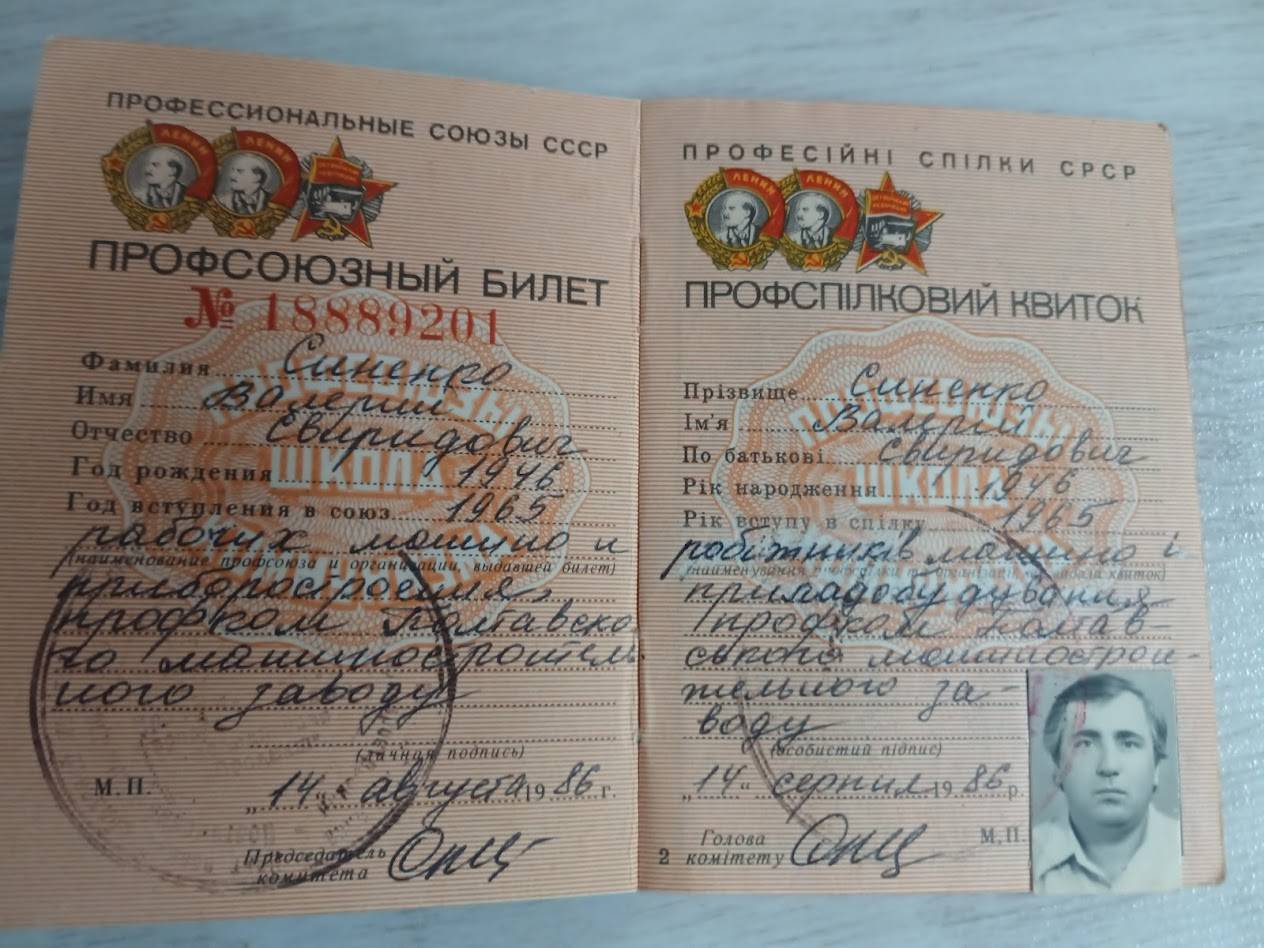 ПРОФЕССИОНАЛЬНЫЕ СОЮЗЫ СССР
ЛЕНИН
ЛЕНИН
ПРОФСОЮЗНЫЙ БИЛЕТ
№ 18889201
Фамилия Синенко
Имя Валерий
Отчество Свиридович
Год рождения 1946
Год вступления в союз 1965
рабочих машино и
(наименование профсоюза и организации, выдавшей билет)
приборостроения,
профком Полтавско
го машиностроител
ного заводу
(личная подпись)
М.П.
„14" августа 1986 г.
Председатель
комитета
ПРОФЕСІЙНІ СПІЛКИ СРСР
ЛЕНИН
ЛЕНИН
ПРОФСПІЛКОВИЙ КВИТОК
Прізвище Синенко
Ім'я Валерій
По батькові Свиридович
Рік народження 1946
Рік вступу в спілку 1965
робітників машино і
(найменування профспілки та організації, що видала квиток)
приладобудування
профком Полтав-
ського машинострои-
тельного за-
воду
(особистий підпис)
„14" серпня 1986 р.
Голова
комітету
М.П.
2
ПРОФСОЮЗЫ
ШКОЛА
КОММУНИЗМА
ПРОФСОЮЗЫ
ШКОЛА
КОММУНИЗМА